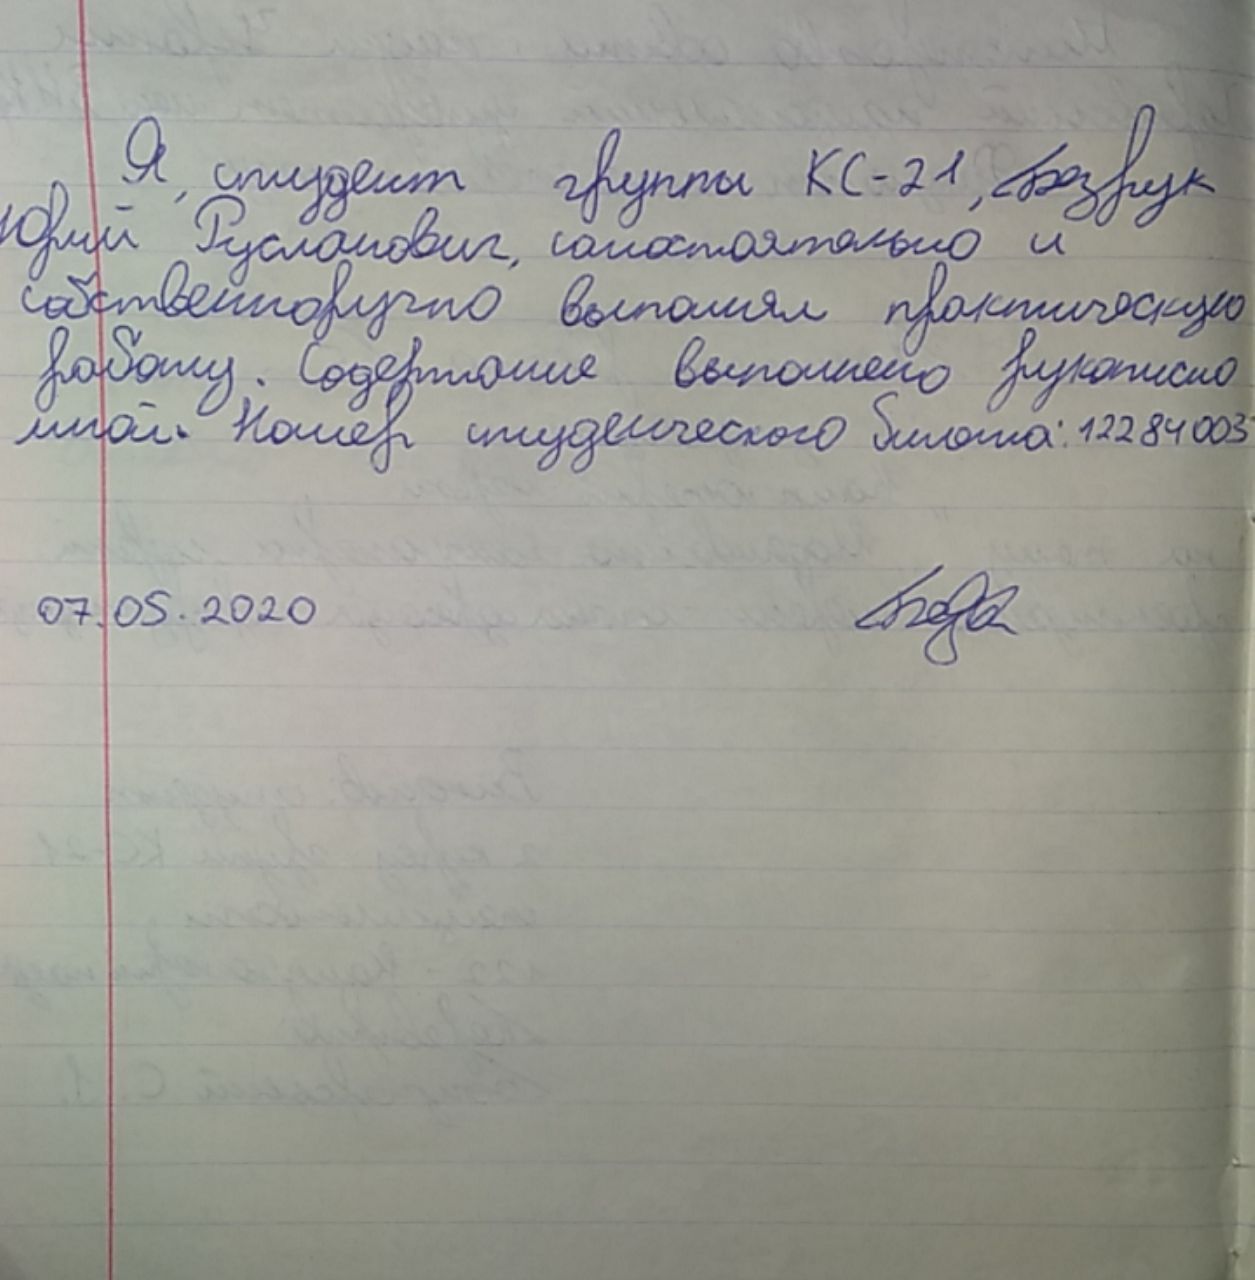 Я, студент группы КС-21, Безрук
Юрий Русланович, самостоятельно и
собственноручно выполнял практическую
работу. Содержание выполнено рукописно
мной. Номер студенческого билета: 12284003
07.05.2020